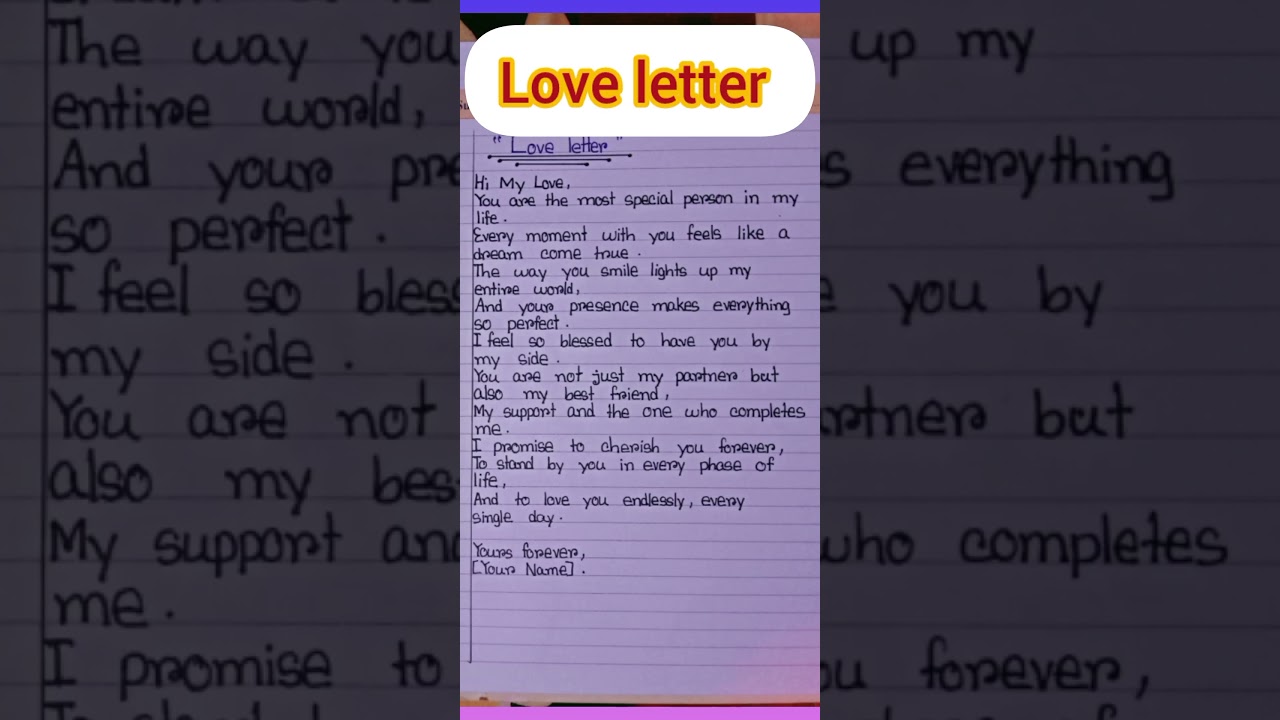 Love letter
" Love letter "
Hi My Love,
You are the most special person in my
life.
Every moment with you feels like a
dream come true.
The way you smile lights up my
entire world,
And your presence makes everything
so perfect.
I feel so blessed to have you by
my side.
You are not just my partner but
also my best friend,
My support and the one who completes
me.
I promise to cherish you forever,
To stand by you in every phase of
life,
And to love you endlessly, every
single day.
Yours forever,
[Your Name].